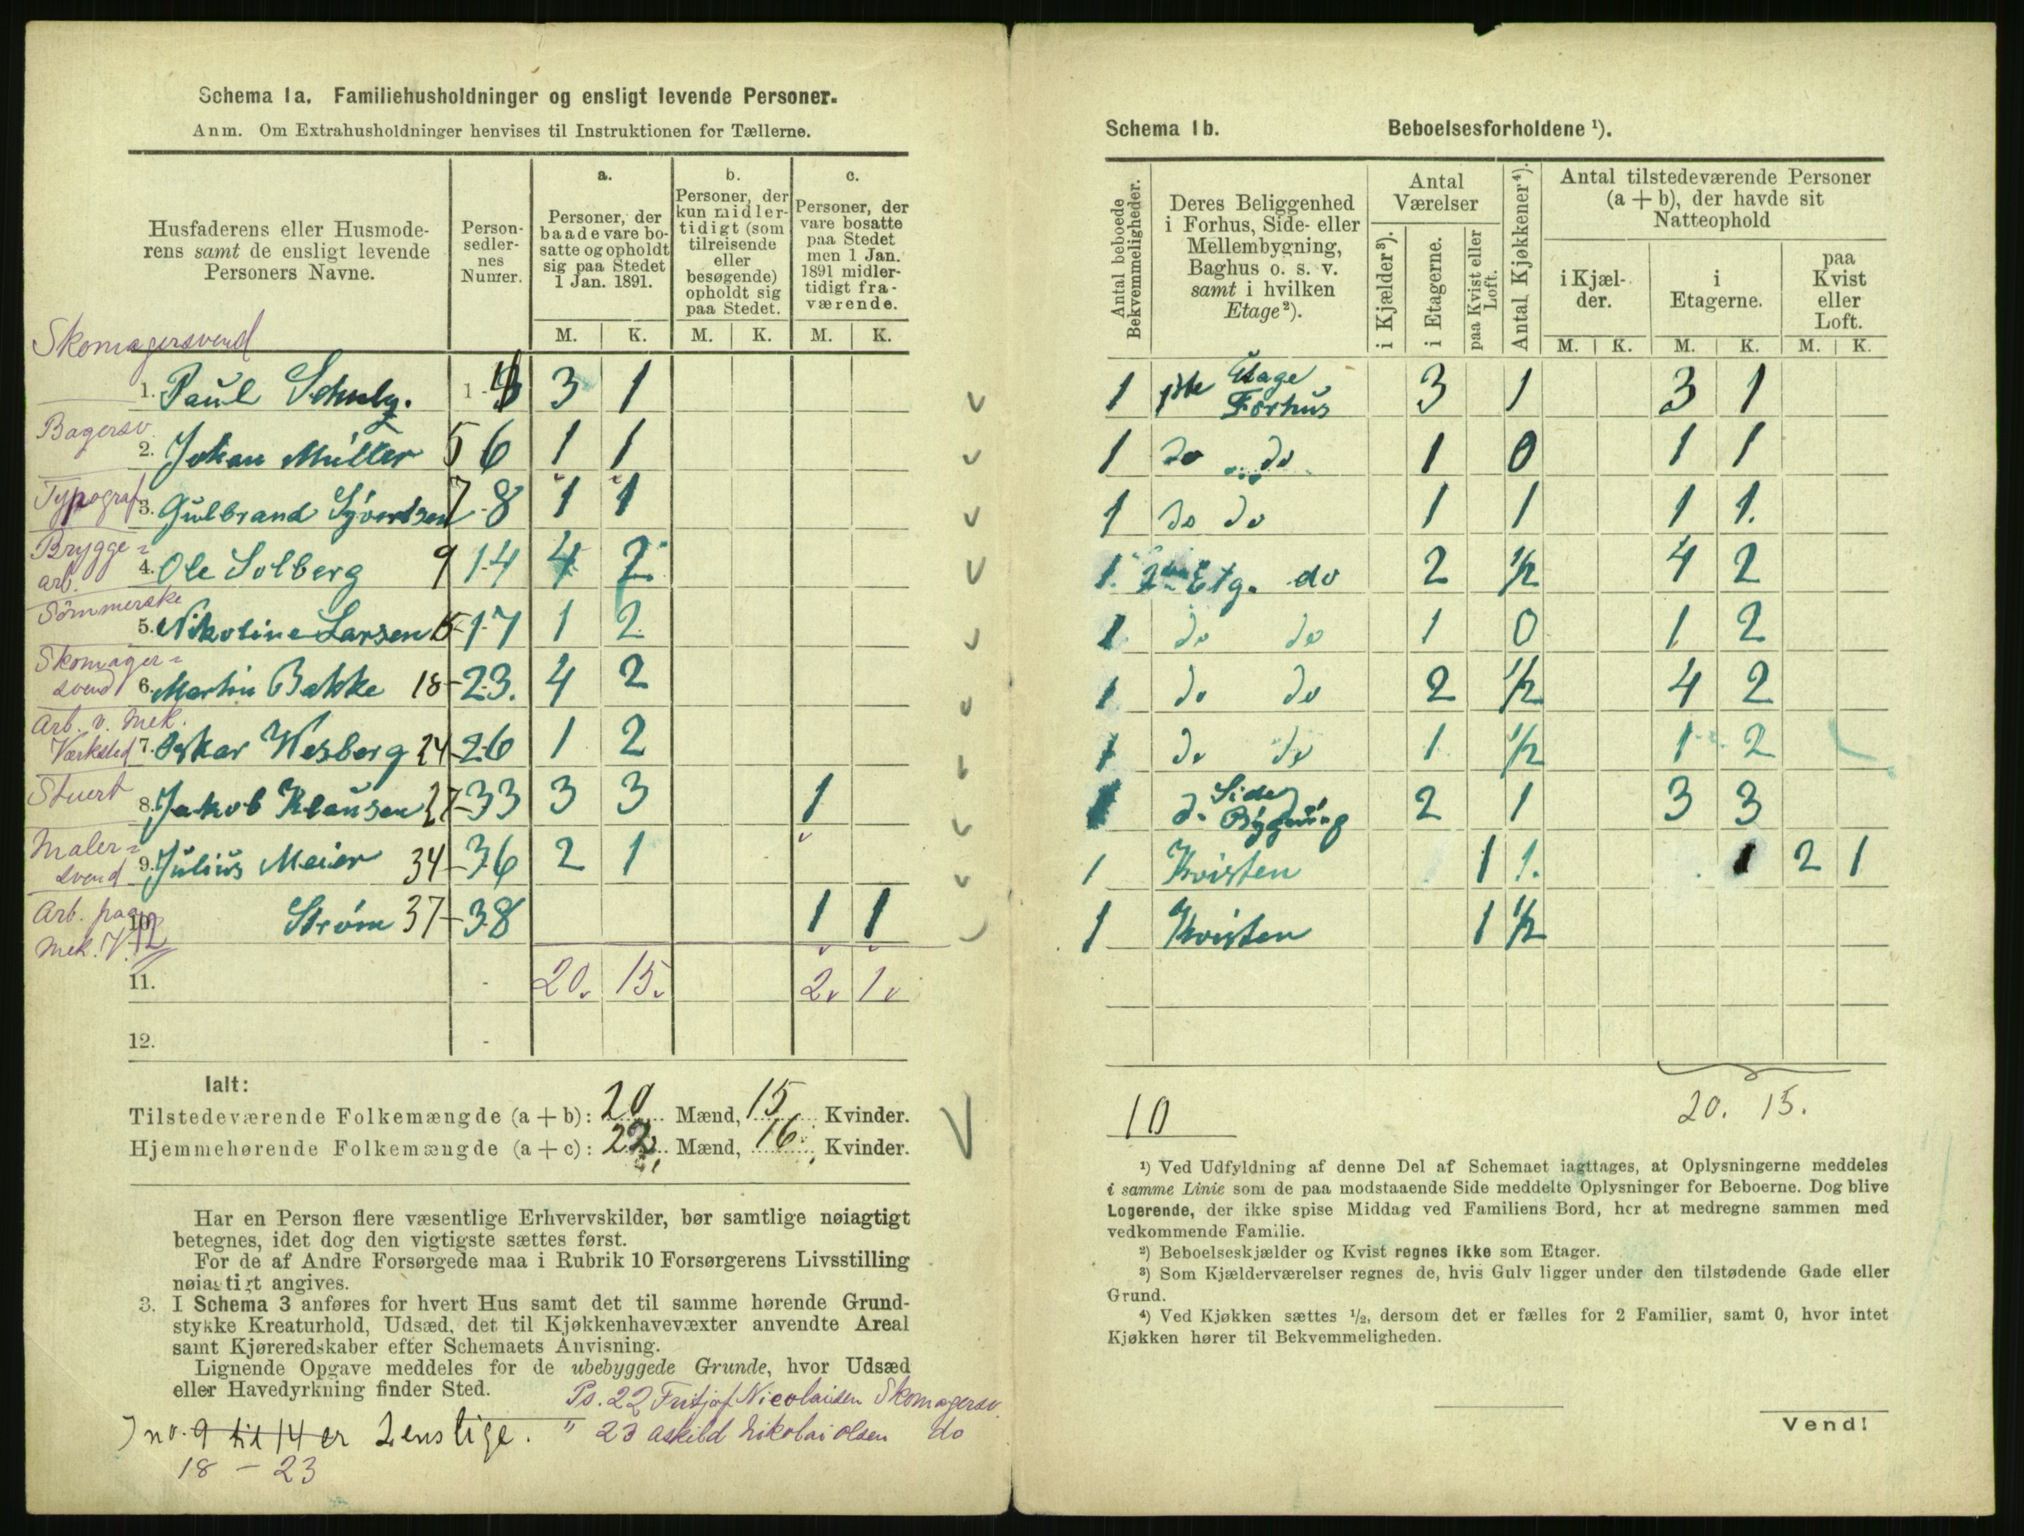 Schema 1a. Familiehusholdninger og ensligt levende Personer.
Anm. Om Extrahusholdninger henvises til Instruktionen for Tællerne.
Husfaderens eller Husmode-
rens samt de ensligt levende
Personers Navne.
Person-
sedler-
nes
Numer.
a.
Personer, der
baade vare bo-
satte og opholdt
sig paa Stedet
1 Jan. 1891.
b.
Personer, der
kun midler-
tidigt (som
tilreisende
eller
besøgende)
opholdt sig
paa Stedet.
c.
Personer, der
vare bosatte
paa Stedet
men 1 Jan.
1891 midler-
tidigt fra-
værende.
M. K. M. K. M. K.
Skomagersvend
1. Paul Schulz. 1- 3 1
Bagersv.
2. Johan Müller 5 6 1 1
Typograf
3. Gulbrand Syvertsen 7-8 1 1
Brygge=
arb.
4. Ole Solberg 9 14 4 2
Sömmerske
5. Nikoline Larsen 15-17 1 2
Skomager=
svend
6. Martin Bakke 18-23. 4 2
Arb. v. Mek.
Værksted
7. Oskar Wesberg 24-26 1 2
Stuert
8. Jakob Klausen 27-33 3 3 1
Maler=
svend
9. Julius Meier 34-36 2 1
Arb. paa
Mek. V.
10. Strøm 37-38 1 1
11. 20. 15. 2. 1.
12.
Ialt:
Tilstedeværende Folkemængde (a + b): 20 Mænd, 15 Kvinder.
Hjemmehørende Folkemængde (a + c): 22 Mænd, 16 Kvinder.
Har en Person flere væsentlige Erhvervskilder, bør samtlige nøiagtigt
betegnes, idet dog den vigtigste sættes først.
For de af Andre Forsørgede maa i Rubrik 10 Forsørgerens Livsstilling
nøiagtigt angives.
3. I Schema 3 anføres for hvert Hus samt det til samme hørende Grund-
stykke Kreaturhold, Udsæd, det til Kjøkkenhavevæxter anvendte Areal
samt Kjøreredskaber efter Schemaets Anvisning.
Lignende Opgave meddeles for de ubebyggede Grunde, hvor Udsæd
eller Havedyrkning finder Sted.
Ps. 22 Fritjof Nicolaisen Skomagersv.
" 23 Askild Nikolai Olsen do
I no. 9 til 14 er 2 enslige.
18 - 23
Schema 1b. Beboelsesforholdene ¹).
Antal beboede
Bekvemmeligheder.
Deres Beliggenhed
i Forhus, Side- eller
Mellembygning,
Baghus o. s. v.
samt i hvilken
Etage²).
Antal
Værelser
i Kjælder³).
i Etagerne.
paa Kvist eller
Loft.
Antal Kjøkkener⁴).
Antal tilstedeværende Personer
(a + b), der havde sit
Natteophold
i Kjæl-
der.
i
Etagerne.
paa
Kvist
eller
Loft.
M. K. M. K. M. K.
1 1ste Etage Forhus 3 1 3 1
1 do do 1 0 1 1
1 do do 1 1 1 1.
1. 2den Etg. do 2 1/2 4 2
1. do do 1 0 1 2
1. do do 2 1/2 4 2
1 do do 1. 1/2 1 2
1 d. Side Bygning 2 1 3 3
1 Kvisten 1 1. 1 2 1
1 Kvisten 1 1/2
10 20. 15.
¹) Ved Udfyldning af denne Del af Schemaet iagttages, at Oplysningerne meddeles
i samme Linie som de paa modstaaende Side meddelte Oplysninger for Beboerne. Dog blive
Logerende, der ikke spise Middag ved Familiens Bord, her at medregne sammen med
vedkommende Familie.
²) Beboelseskjælder og Kvist regnes ikke som Etager.
³) Som Kjælderværelser regnes de, hvis Gulv ligger under den tilstødende Gade eller
Grund.
⁴) Ved Kjøkken sættes ¹/₂, dersom det er fælles for 2 Familier, samt 0, hvor intet
Kjøkken hører til Bekvemmeligheden.
Vend!